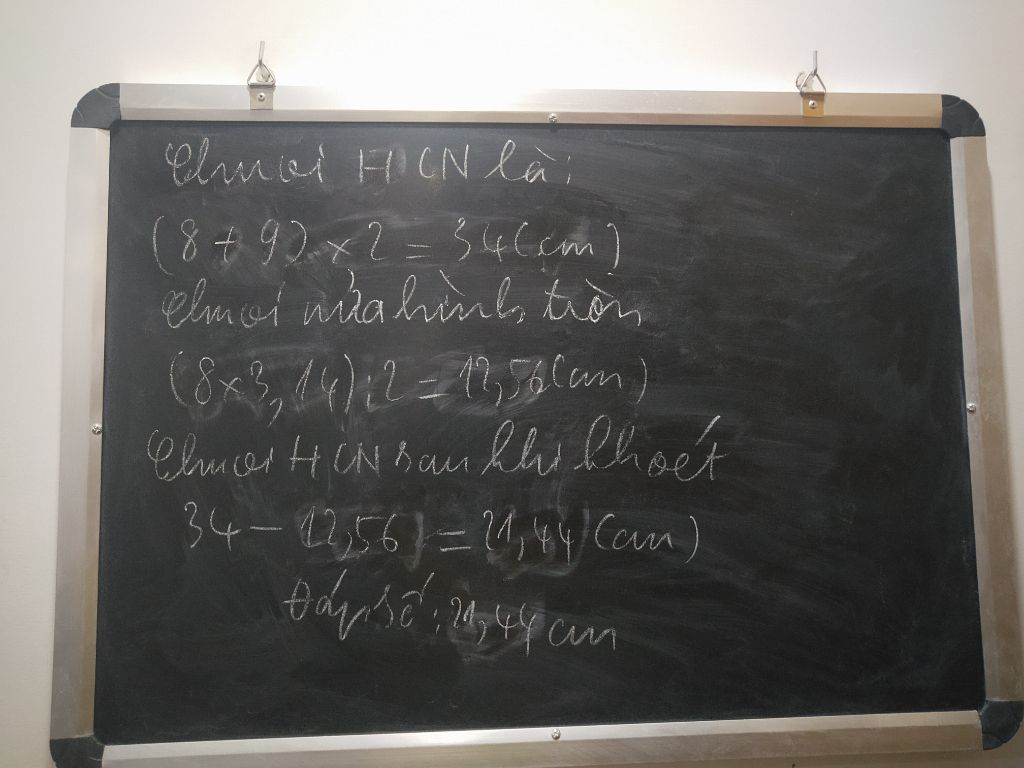 Chu vi HCN là:
(8 + 9) × 2 = 34 (cm)
Chu vi nửa hình tròn
(8 × 3,14) : 2 = 12,56 (cm)
Chu vi HCN sau khi khoét
34 - 12,56 = 21,44 (cm)
Đáp số : 21,44 cm